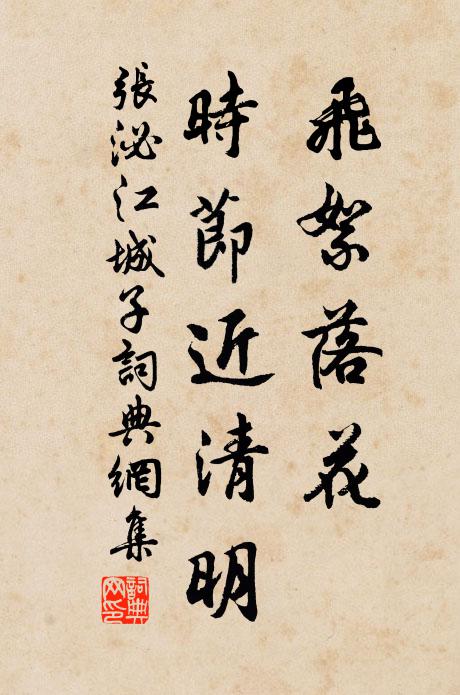 飛絮落花
時節近清明
張泌江城子詞典網集
詞典網印